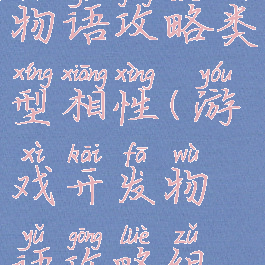 物语攻略类
xíng xiāng xìng yóu
型相性(游
xì kāi fā wù
戏开发物
yǔ gōng lüè zǔ
语攻略组